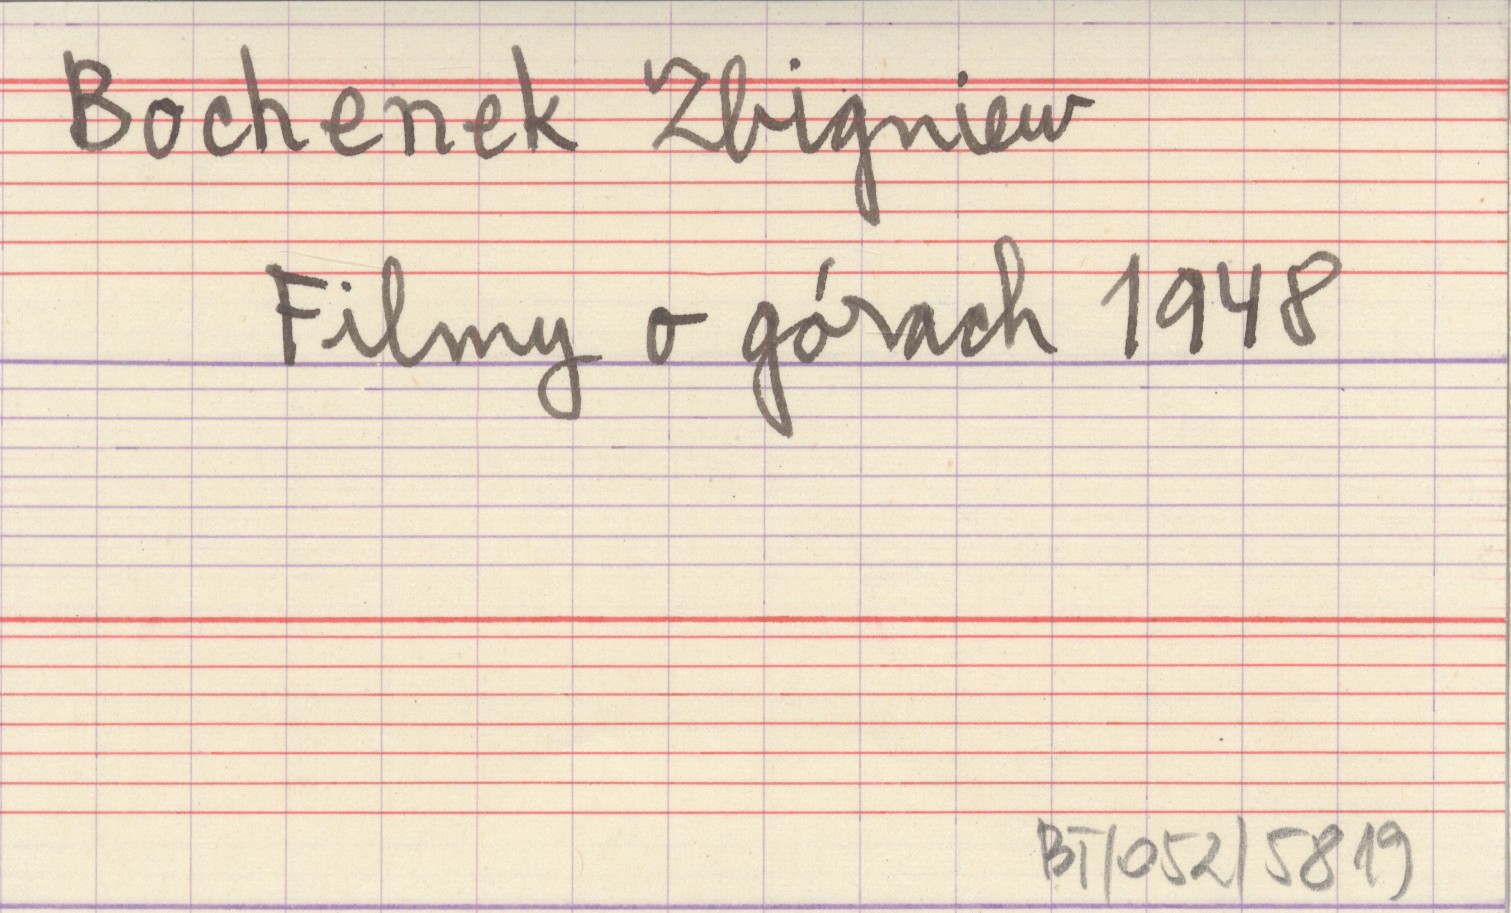 Bochenek Zbigniew
Filmy o górach 1948
BT/052/5819